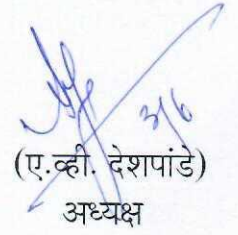 3/6
(ए.व्ही. देशपांडे)
अध्यक्ष